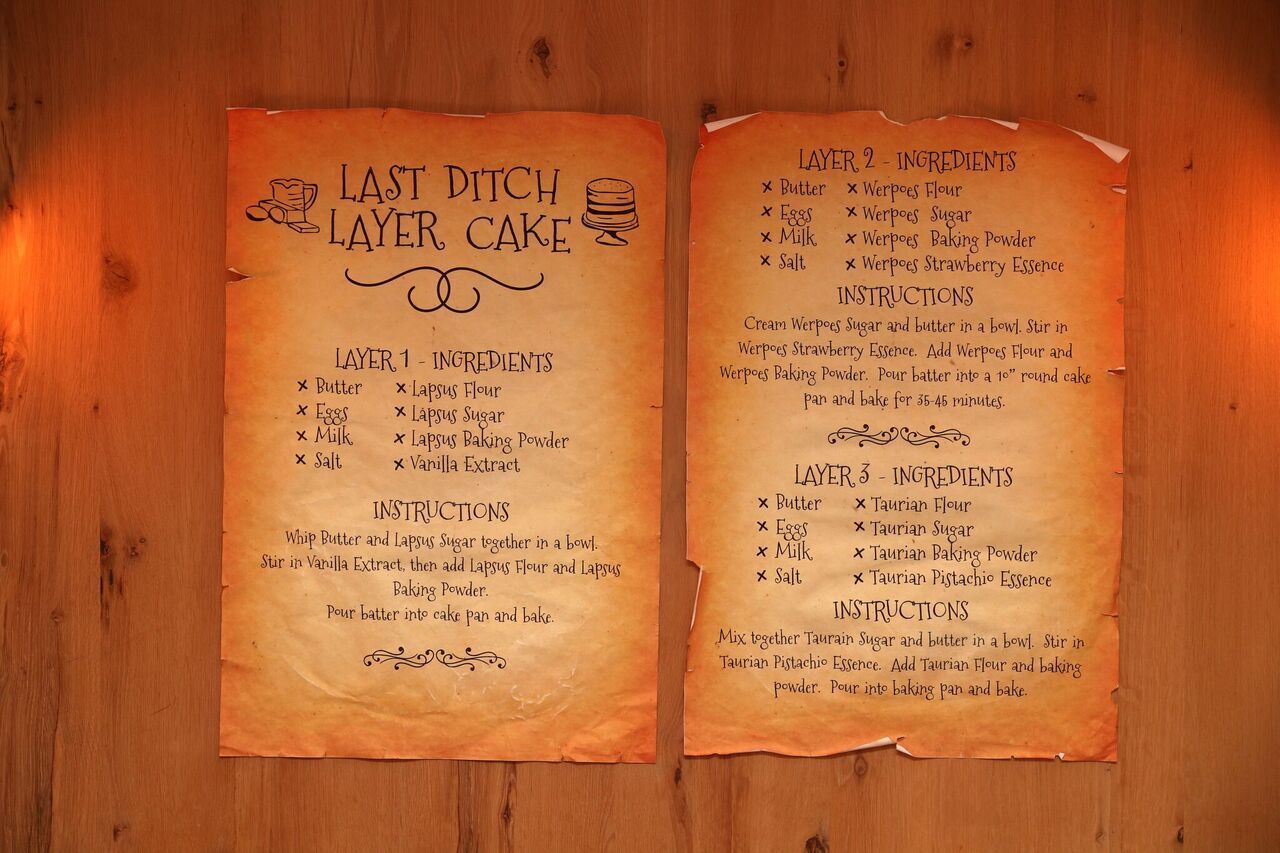 LAST DITCH
LAYER CAKE
LAYER 1 - INGREDIENTS
x Butter x Lapsus Flour
x Eggs x Lapsus Sugar
x Milk x Lapsus Baking Powder
x Salt x Vanilla Extract
INSTRUCTIONS
Whip Butter and Lapsus Sugar together in a bowl.
Stir in Vanilla Extract, then add Lapsus Flour and Lapsus
Baking Powder.
Pour batter into cake pan and bake.
LAYER 2 - INGREDIENTS
x Butter x Werpoes Flour
x Eggs x Werpoes Sugar
x Milk x Werpoes Baking Powder
x Salt x Werpoes Strawberry Essence
INSTRUCTIONS
Cream Werpoes Sugar and butter in a bowl. Stir in
Werpoes Strawberry Essence. Add Werpoes Flour and
Werpoes Baking Powder. Pour batter into a 10" round cake
pan and bake for 35-45 minutes.
LAYER 3 - INGREDIENTS
x Butter x Taurian Flour
x Eggs x Taurian Sugar
x Milk x Taurian Baking Powder
x Salt x Taurian Pistachio Essence
INSTRUCTIONS
Mix together Taurain Sugar and butter in a bowl. Stir in
Taurian Pistachio Essence. Add Taurian Flour and baking
powder. Pour into baking pan and bake.